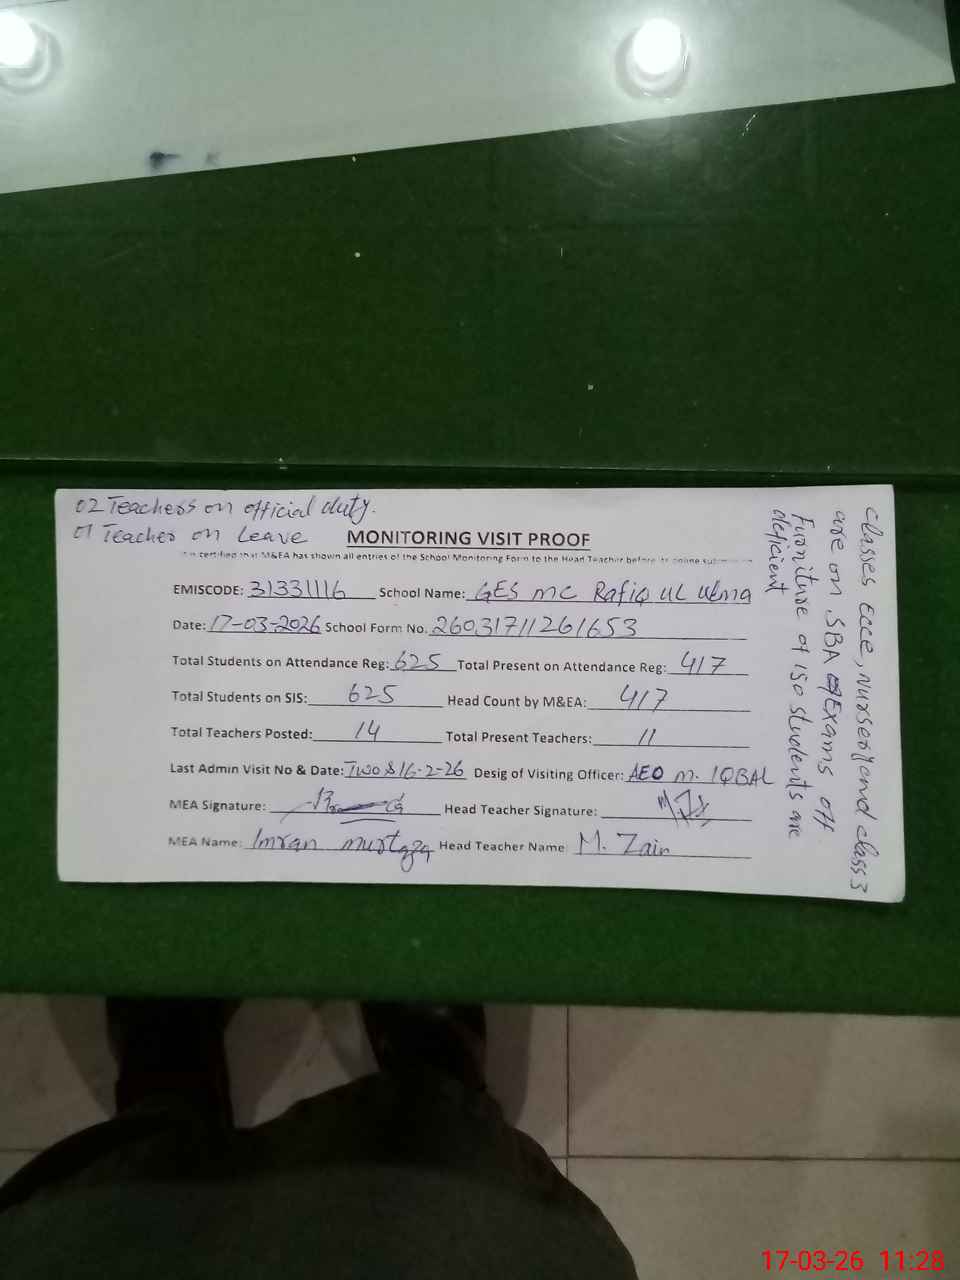 02 Teachers on official duty.
01 Teacher on Leave
MONITORING VISIT PROOF
It is certified that M&EA has shown all entries of the School Monitoring Form to the Head Teacher before its online submission
EMISCODE: 31331116 School Name: GES MC Rafiq ul ulma
Date: 17-03-2026 School Form No. 26031711261653
Total Students on Attendance Reg: 625 Total Present on Attendance Reg: 417
Total Students on SIS: 625 Head Count by M&EA: 417
Total Teachers Posted: 14 Total Present Teachers: 11
Last Admin Visit No & Date: Two & 16-2-26 Desig of Visiting Officer: AEO M. IQBAL
MEA Signature: Head Teacher Signature:
MEA Name: Imran murtaza Head Teacher Name: M. Zain
classes Ecce, Nursery and class 3
are on SBA Exams off
Furniture of 150 students are
deficient
17-03-26 11:28